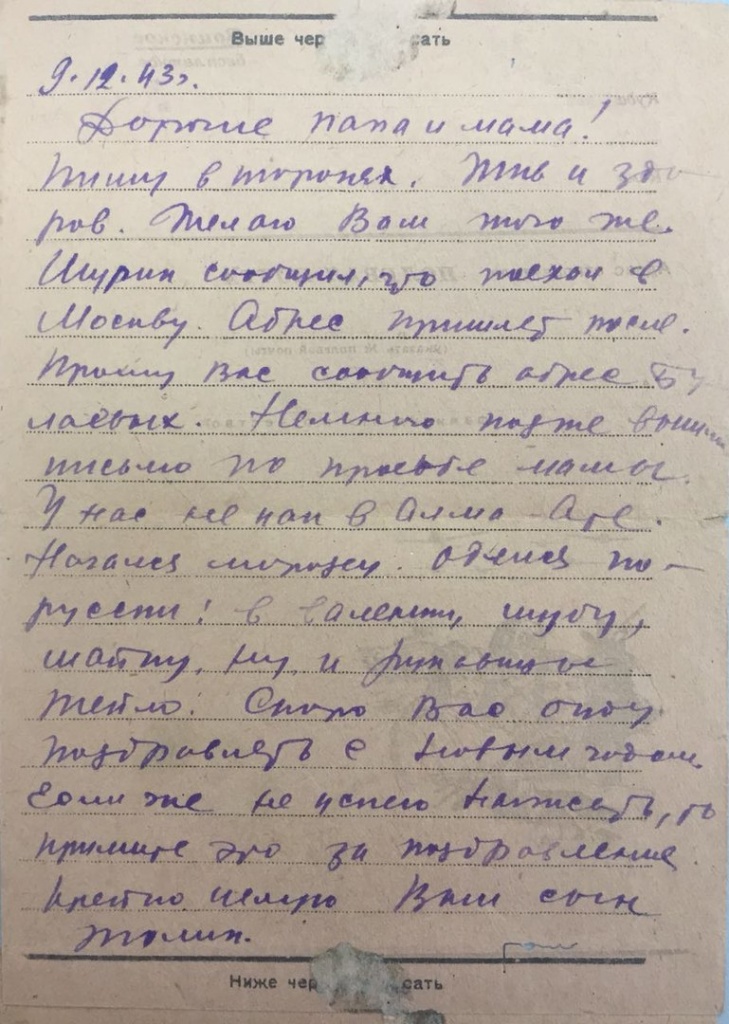 Выше чер сать
9.12.43г.
Дорогие папа и мама!
Пишу в торопях. Жив и здо-
ров. Желаю Вам того же.
Шурик сообщил, что поехал в
Москву. Адрес пришлет после.
Прошу Вас сообщить адрес Бу
лаевых. Немного позже вышлю
письмо по просьбе мамы.
У нас не как в Алма-Ате.
Начался морозец. Оделся по-
русски! в валенки, шубу,
шапку, ну и рукавицы
Тепло! Скоро Вас буду
поздравлять с новым годом.
Если же не успею написать, то
примите это за поздравление
Крепко целую Ваш сын
Толик.
Ниже чер сать